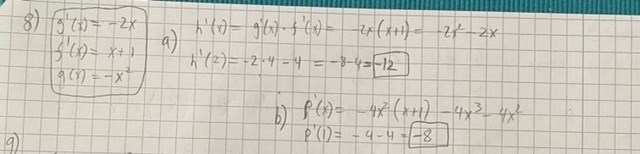 8) g'(x) = -2x
f'(x) = x+1
g(x) = -x²
a) h'(x) = g'(x) · f'(x) = -2x(x+1) = -2x² - 2x
h'(2) = -2·4 - 4 = -8-4 = -12
b) p'(x) = -4x²(x+1) -4x³ - 4x²
p'(1) = -4-4 = -8
9)